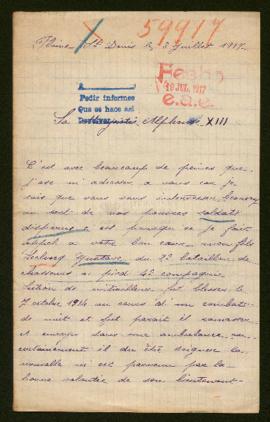 59917
Plaine St Denis le 3 Juillet 1917
Fecha
10 JUL. 1917
e.a.e.
A
Pedir informes
Que se hace así
Sa Majesté Alphonse XIII
C'est avec beaucoup de peines que
j'ose m'adresser a vous car je
sais que vous vous
sort de nos pauvres soldats
disparus et je fait
appel a votre bon cœur mon fils
Gustave du 2e bataillon de
chasseurs a pied 4e compagnie
section de mitrailleuse fut blesser le
7 octobre 1914 au cours d'un combat
de nuit et fut parait il ramasser
et envoyer dans une ambulance ou
certainement il du être soigner la
nouvelle m'est parvenue par la
bonne volontée de son lieutenant